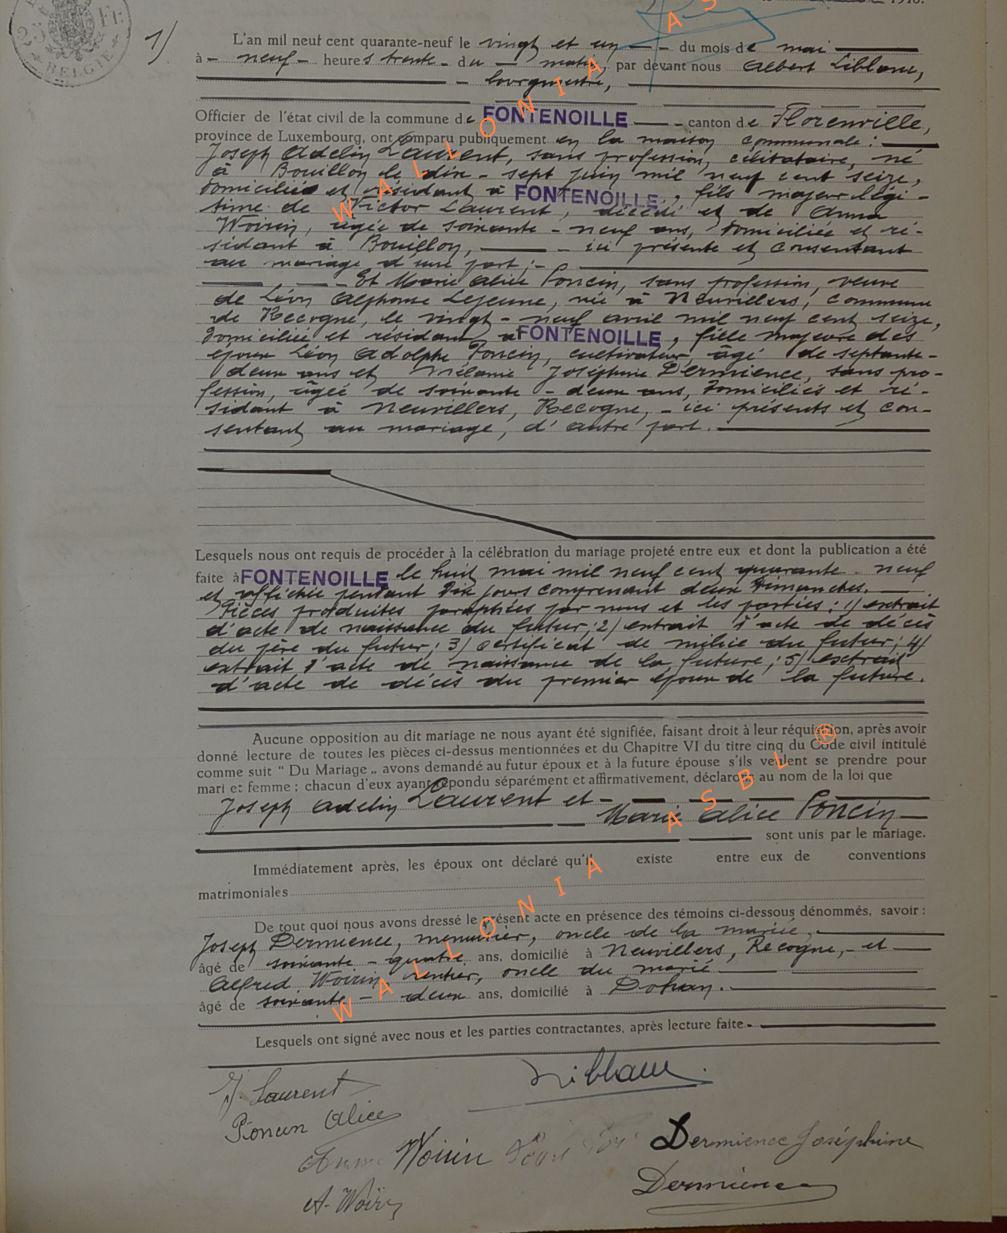 1)
BELGIE
L'an mil neuf cent quarante-neuf le vingt et un du mois de mai
à neuf heures trente du matin, par devant nous Albert Liblanc,
bourgmestre,
Officier de l'état civil de la commune de FONTENOILLE canton de Florenville,
province de Luxembourg, ont comparu publiquement en la maison communale :
Joseph Adelin Laurent, sans profession, célibataire, né
à Bouillon le dix-sept juin mil neuf cent seize,
domicilié et résidant à FONTENOILLE, fils majeur légi-
time de Victor Laurent, décédé et de Anna
Woirin, âgée de soixante-neuf ans, domiciliée et ré-
sidant à Bouillon, ici présente et consentant
au mariage d'une part ;
Et Marie Alice Poncin, sans profession, veuve
de Léon Alphonse Lejeune, née à Neuvillers, commune
de Recogne, le vingt-neuf avril mil neuf cent seize,
domiciliée et résidant à FONTENOILLE, fille majeure des
époux Léon Adolphe Poncin, cultivateur, âgé de septante-
deux ans et Mélanie Joséphine Dermience, sans pro-
fession, âgée de soixante-deux ans, domiciliés et ré-
sidant à Neuvillers, Recogne, - ici présents et con-
sentant au mariage, d'autre part.
Lesquels nous ont requis de procéder à la célébration du mariage projeté entre eux et dont la publication a été
faite à FONTENOILLE le huit mai mil neuf cent quarante-neuf
et affichée pendant dix jours comprenant deux dimanches.
Pièces produites paraphées par nous et les parties : 1/ extrait
d'acte de naissance du futur ; 2/ extrait d'acte de décès
du père du futur ; 3/ certificat de milice du futur ; 4/
extrait d'acte de naissance de la future ; 5/ extrait
d'acte de décès du premier époux de la future.
Aucune opposition au dit mariage ne nous ayant été signifiée, faisant droit à leur réquisition, après avoir
donné lecture de toutes les pièces ci-dessus mentionnées et du Chapitre VI du titre cinq du Code civil intitulé
comme suit " Du Mariage „ avons demandé au futur époux et à la future épouse s'ils veulent se prendre pour
mari et femme ; chacun d'eux ayant répondu séparément et affirmativement, déclarons au nom de la loi que
Joseph Adelin Laurent et
Marie Alice Poncin
sont unis par le mariage.
Immédiatement après, les époux ont déclaré qu'il existe entre eux de conventions
matrimoniales
De tout quoi nous avons dressé le présent acte en présence des témoins ci-dessous dénommés, savoir :
Joseph Dermience, menuisier, oncle de la mariée,
âgé de soixante-quatre ans, domicilié à Neuvillers, Recogne, - et
Alfred Woirin, rentier, oncle du marié
âgé de soixante-deux ans, domicilié à Dohan.
Lesquels ont signé avec nous et les parties contractantes, après lecture faite
WALLONIA ASBL ®
J. Laurent
Liblanc
Poncin Alice
Anna Woirin
Dermience Joséphine
A. Woirin
Dermience